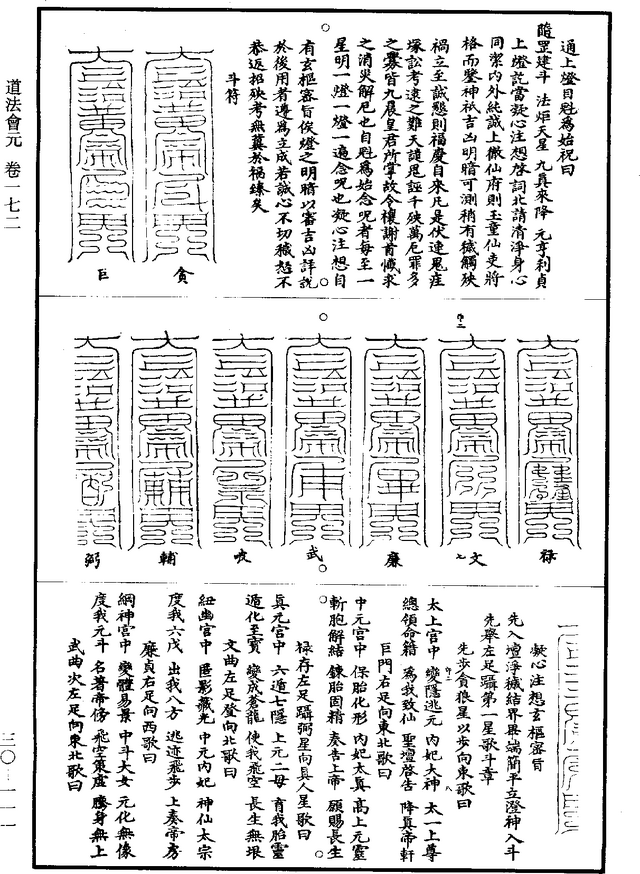 道法會元 卷一七二
三〇—一一一
通上燈目尅為始祝曰
隨罡建斗 法炬天星 九真來降 元亨利貞
上燈訖當凝心注想啓詞北請清淨身心
同潔內外純誠上徹仙府則玉童仙吏將
格而鑒神祇吉凶明暗可測稍有穢觸殃
禍立至誠懇則福慶自來凡是伏連鬼疰
塚訟考遠之難天譴鬼誣千殃萬厄罪多
之釁皆九晨皇君所掌故令禳謝首懺求
之消災解厄也自尅為始念呪者每至一
星明一燈一燈一遍念呪也凝心注想自
有玄樞審旨俟燈之明暗以審吉凶詳說
於後用者遵為立成若誠心不切穢怠不
恭返招殃考無冀於禍臻矣
斗符
貪
巨
祿
文
廉
武
破
輔
弼
凝心注想玄樞審旨
先入壇淨穢結界畢端簡平立澄神入斗
先舉左足躡第一星歌斗章
先步貪狼星以步向東歌曰
太上宮中 變隱逃元 內妃大神 太一上尊
總領命籍 為我致仙 聖壇啓告 降真帝軒
巨門右足向東北歌曰
中元宮中 保胎化形 內妃太真 高上元靈
斬胞解結 鍊胎固精 奏告上帝 願賜長生
祿存左足躡弼星向真人星歌曰
真元宮中 六遁七隱 上元二母 育我胎靈
遁化至寶 變成蒼龍 使我飛空 長生無垠
文曲左足登向北歌曰
紐幽宮中 匿影藏光 中元內妃 神仙太宗
度我六戊 出我八方 逃迹飛步 上奏帝房
廉貞右足向西歌曰
綱神宮中 變體易景 中斗大女 元化無像
度我元斗 名著帝傍 飛空策虛 騰身無上
武曲次左足向東北歌曰